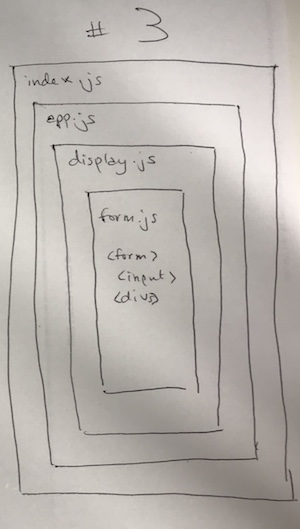 # 3
index.js
app.js
display.js
form.js
<form>
<input>
<divs>